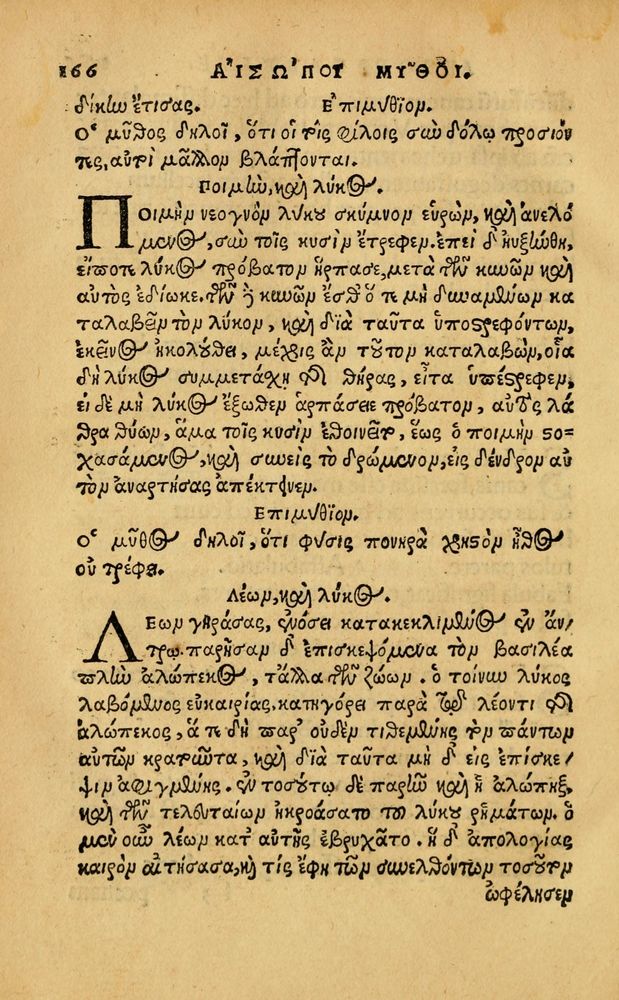 166 ΑἸΣΩΠΟΥ ΜΥ͂ΘΟΙ.
δίκίω ἔτισας. Ἐπιμύθιον.
Ὁ μῦθος δηλοῖ, ὅτι οἱ τοῖς φίλοις σὺν δόλῳ προσιόν
τες, αὐτοὶ μᾶλλον βλάπτονται.
Ποιμὴν, καὶ λύκος.
Ποιμὴν νεογνὸν λύκου σκύμνον εὑρὼν, καὶ ἀνελό
μενος, σὺν τοῖς κυσὶν ἔτρεφεν. ἐπεὶ δ' ηὐξήθη,
εἴποτε λύκος πρόβατον ἥρπασε, μετὰ τῶν κυνῶν καὶ
αὐτὸς ἐδίωκε. τῶν δὲ κυνῶν ἔσθ' ὅτε μὴ δυναμένων κα
ταλαβεῖν τὸν λύκον, καὶ διὰ ταῦτα ὑποστρεφόντων,
ἐκεῖνος ἠκολούθει, μέχρις ἂν τοῦτον καταλαβὼν, οἷα
δὴ λύκος συμμετάσχῃ τῆς θήρας, εἶτα ὑπέστρεφεν,
εἰ δὲ μὴ λύκος ἔξωθεν ἁρπάσειε πρόβατον, αὐτὸς λά
θρα θύων, ἅμα τοῖς κυσὶν ἐθοινεῖτο, ἕως ὁ ποιμὴν στο=
χασάμενος, καὶ συνεὶς τὸ δρώμενον, εἰς δένδρον αὐ
τὸν ἀναρτήσας ἀπέκτεινεν.
Ἐπιμύθιον.
Ὁ μῦθος δηλοῖ, ὅτι φύσις πονηρὰ χρηστὸν ἦθος
οὐ τρέφει.
Λέων, καὶ λύκος.
Λέων γηράσας, ἐνόσει κατακεκλιμένος ἐν ἄν/
τρῳ. παρῆσαν δ' ἐπισκεψόμενα τὸν βασιλέα
πλὴν ἀλώπεκος, τἄλλα τῶν ζώων. ὁ τοίνυν λύκος
λαβόμενος εὐκαιρίας, κατηγόρει παρὰ τῷ λέοντι τῆς
ἀλώπεκος, ἅτε δὴ παρ' οὐδὲν τιθεμένης τὸν πάντων
αὐτῶν κρατοῦντα, καὶ διὰ ταῦτα μὴ δ' εἰς ἐπίσκε/
ψιν ἀφιγμένης. ἐν τοσούτῳ δὲ παρῆν καὶ ἡ ἀλώπηξ,
καὶ τῶν τελευταίων ἠκροάσατο τοῦ λύκου ῥημάτων. ὁ
μὲν οὖν λέων κατ' αὐτῆς ἐβρυχᾶτο. ἡ δ' ἀπολογίας
καιρὸν αἰτήσασα, καὶ τίς ἔφη τῶν συνελθόντων τοσοῦτον
ὠφέλησεν